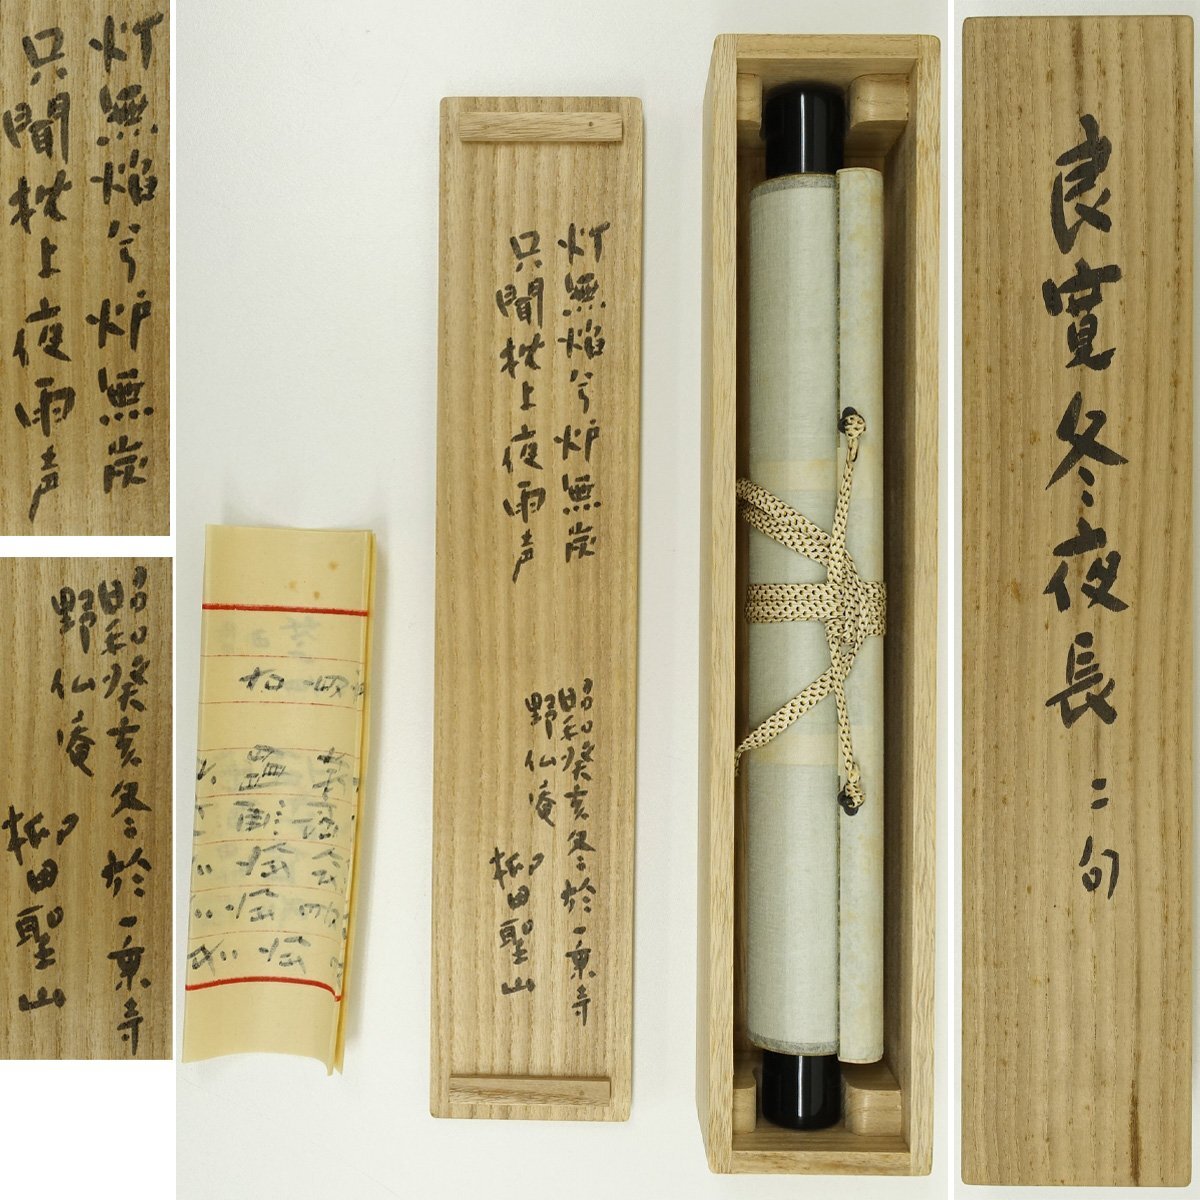 灯無焰兮炉無炭
只聞枕上夜雨声
昭和癸亥冬於一乗寺
野仙庵
柳田聖山
灯無焰兮炉無炭
只聞枕上夜雨声
昭和癸亥冬於一乗寺
野仙庵
柳田聖山
良寛冬夜長二句